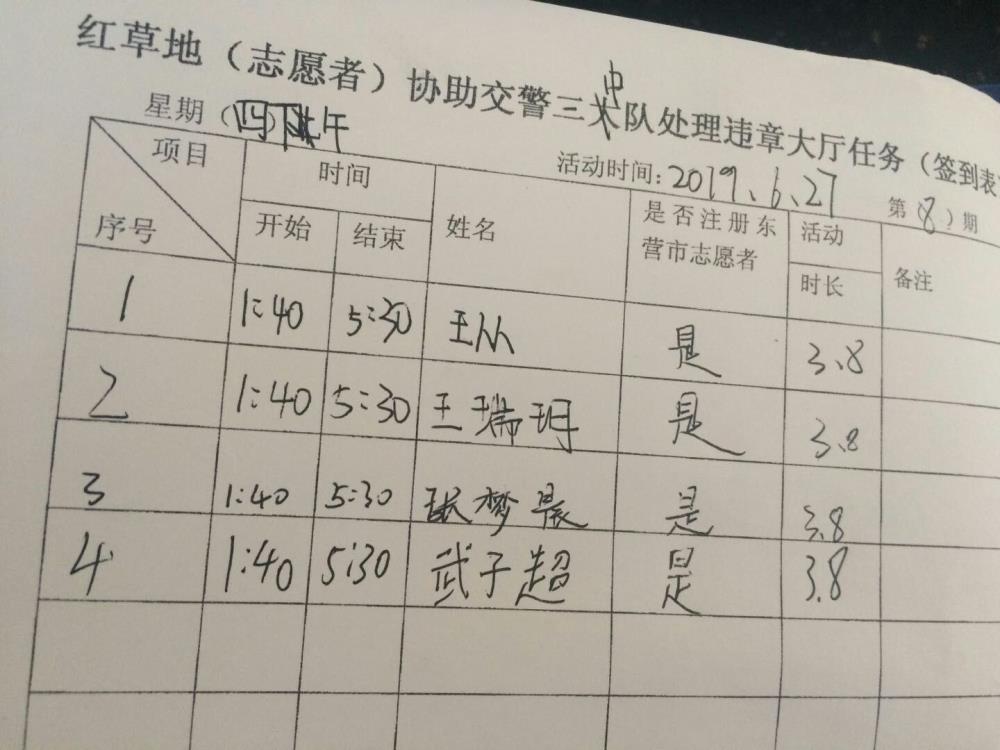 红草地（志愿者）协助交警三中队处理违章大厅任务（签到表
星期（四）下午 活动时间：2019、6、27 第（8）期
项目 时间 姓名 是否注册东营市志愿者 活动时长 备注
序号 开始 结束
1 1:40 5:30 王从 是 3、8
2 1:40 5:30 王瑞玥 是 3、8
3 1:40 5:30 张梦晨 是 3.8
4 1:40 5:30 武子超 是 3.8